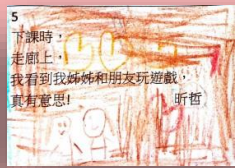 5
下課時，
走廊上，
我看到我姊姊和朋友玩遊戲，
真有意思!
昕哲